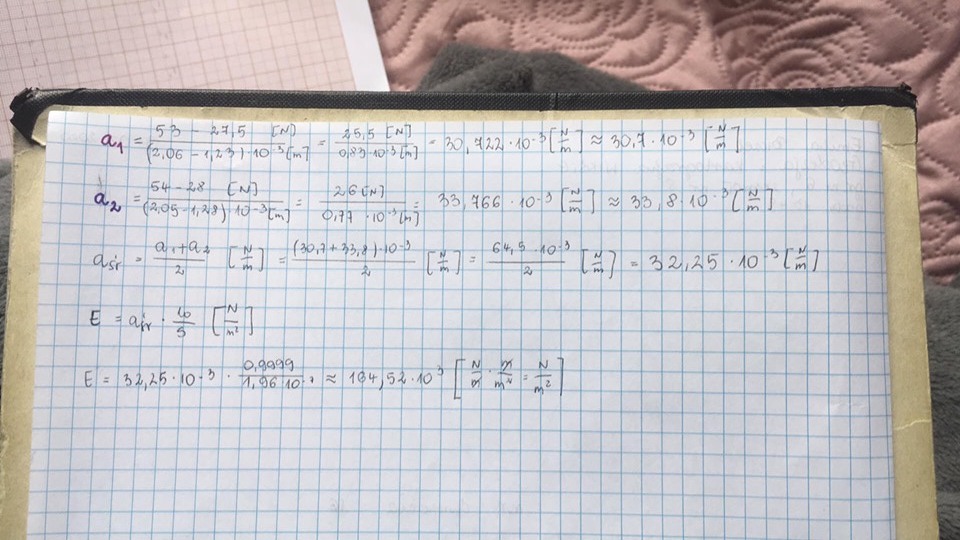 a₁ = (53 - 27,5 [N]) / ((2,06 - 1,23)·10⁻³[m]) = 25,5 [N] / 0,83·10⁻³[m] = 30,722·10⁻³ [N/m] ≈ 30,7·10⁻³ [N/m]
a₂ = (54 - 28 [N]) / ((2,05 - 1,28)·10⁻³[m]) = 26[N] / 0,77·10⁻³[m] = 33,766·10⁻³ [N/m] ≈ 33,8·10⁻³ [N/m]
aśr = (a₁+a₂)/2 [N/m] = ((30,7+33,8)·10⁻³)/2 [N/m] = (64,5·10⁻³)/2 [N/m] = 32,25·10⁻³ [N/m]
E = aśr · l₀/S [N/m²]
E = 32,25·10⁻³ · 0,9999/1,96·10 ≈ 164,52·10³ [N/m · m/m⁴ = N/m²]